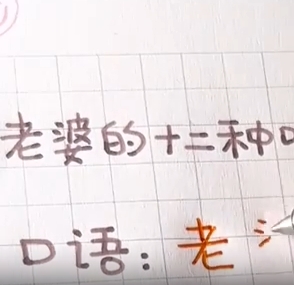 老婆的十二种
口语：老